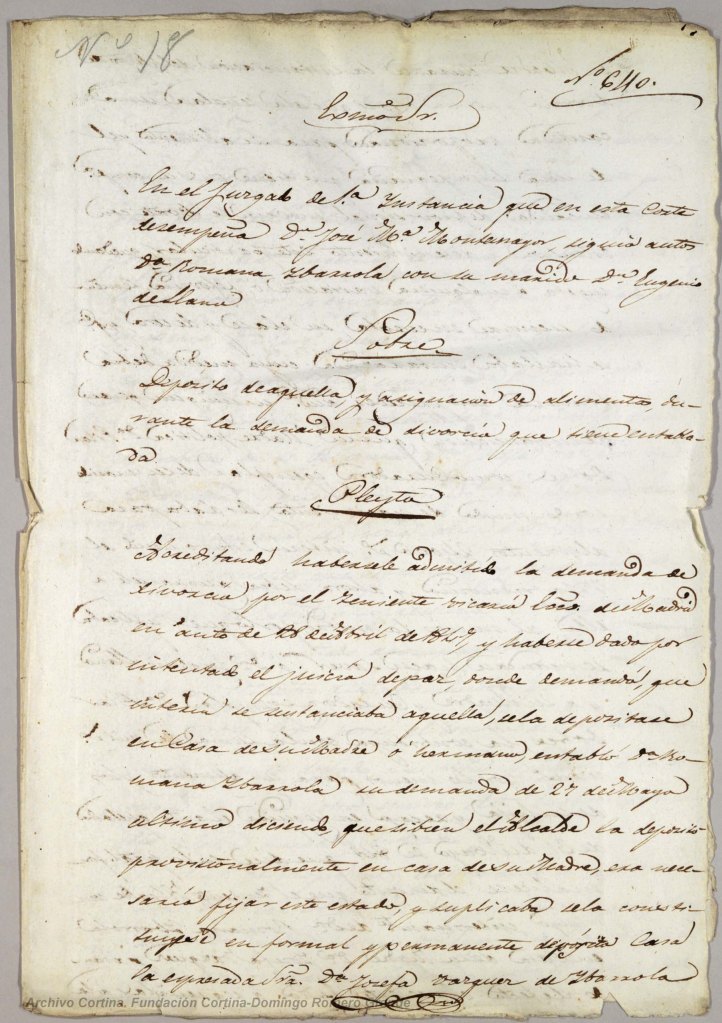 Nº 18
Nº 640.
Exmo Sr.
En el Juzgado de 1.ª Instancia que en esta Corte
desempeña Dn. José Mª Montemayor, siguió autos
Dª Romana Ibarrola, con su marido Dn Eugenio
de Llano
Sobre
Deposito de aquella y asignacion de alimentos, du-
rante la demanda de divorcio que tiene entabla-
da
Pleyto
Acreditando habersele admitido la demanda de
divorcio por el Teniente vicario Ecco. de Madrid
en auto de 28 de Abril de 1847, y haberse dado por
intentado el juicio de paz, donde demandó, que
interin se sustanciaba aquella, se la depositase
en Casa de su Madre ó hermano, entabló Dª Ro-
mana Ibarrola su demanda de 27 de Mayo
ultimo diciendo, que si bien el Alcalde la depositó
provisionalmente en casa de su Madre, era nece-
sario fijar este estado, y suplicaba se la consti-
tuyese en formal y permanente depósito Casa
la espresada Sra. Dª Josefa Vazquez de Ibarrola
Archivo Cortina. Fundación Cortina-Domingo Romero Grande